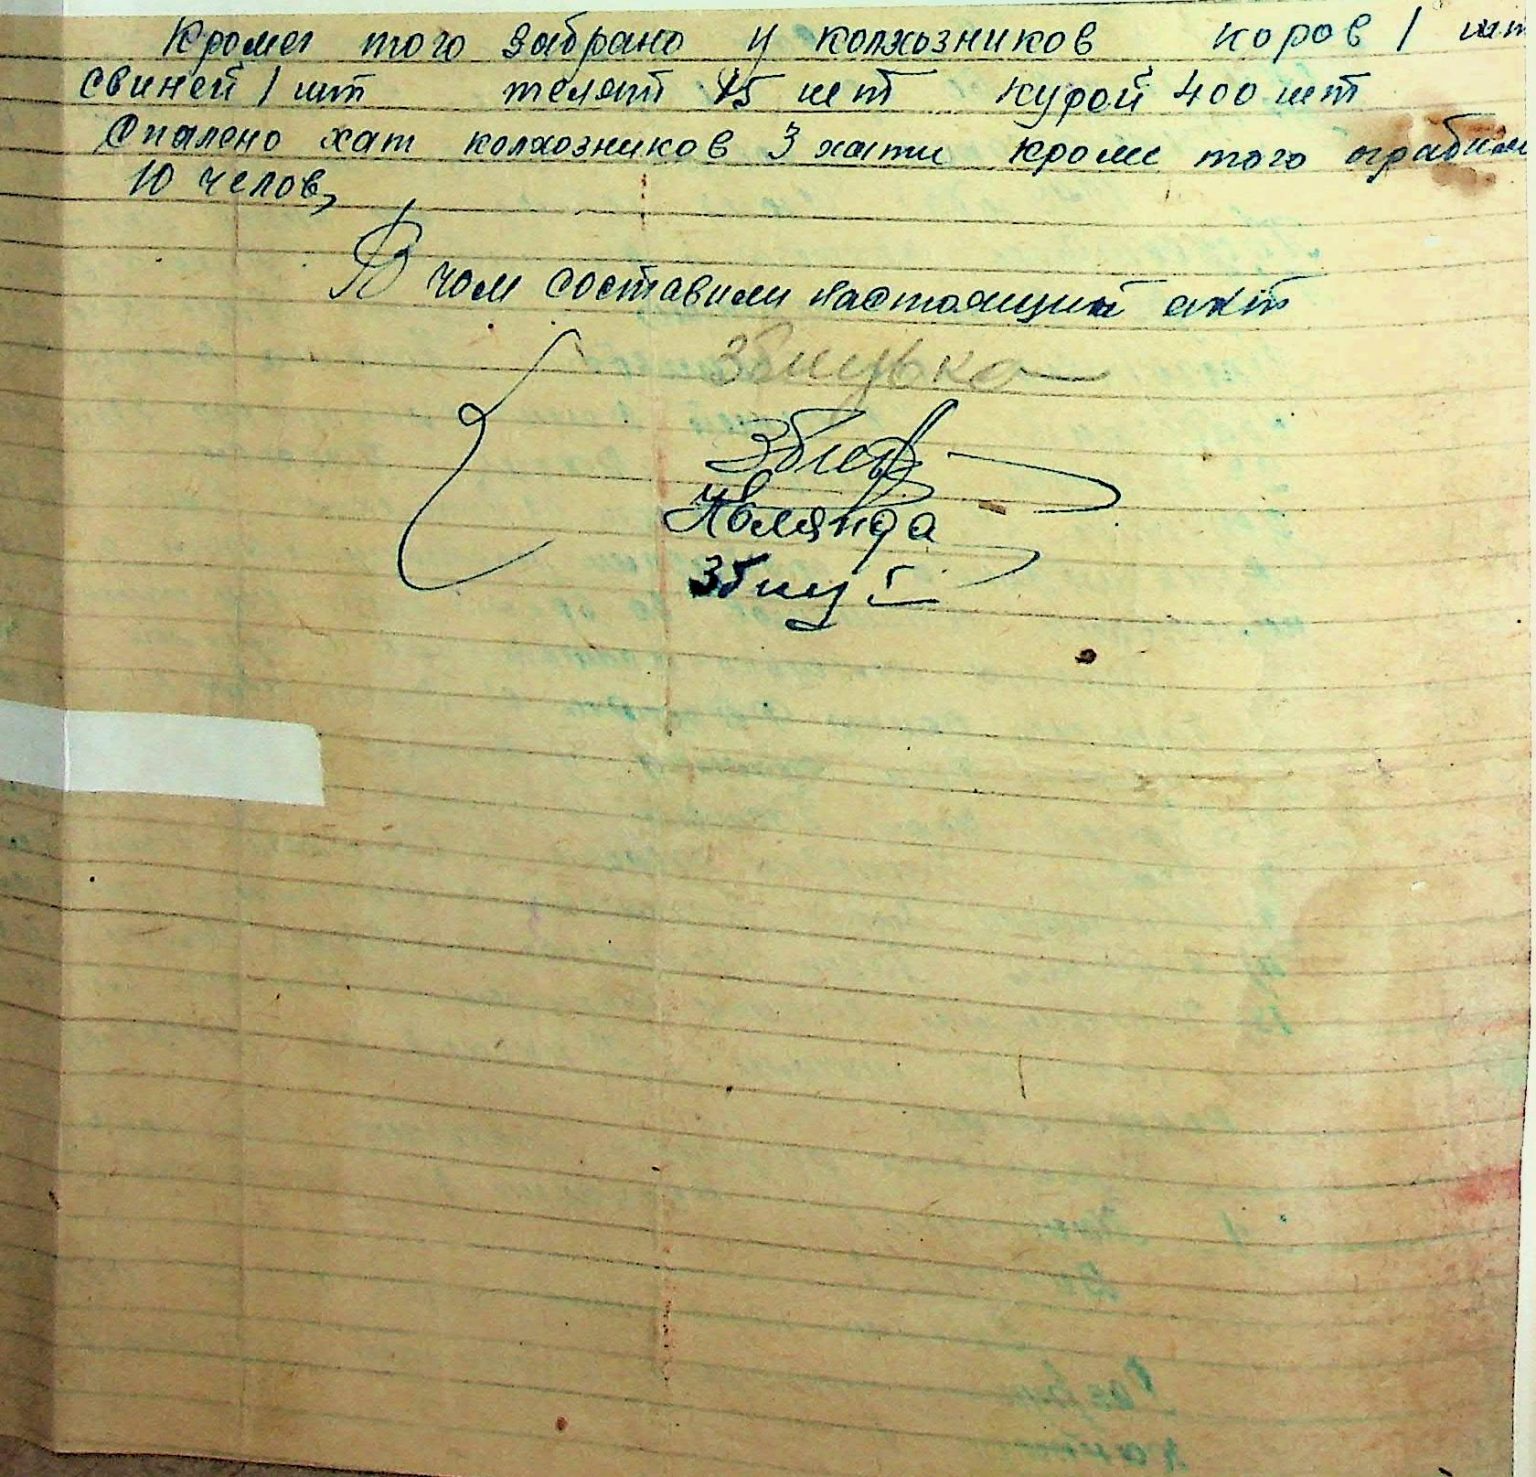 Кромег того забрано у колхозников коров 1 шт
свиней 1 шт телят 15 шт курой 400 шт
Спалено хат колхозников 3 хати кроме того ограбили
10 челов,
В чом составили настоящий акт
Збицька
Квлянда
Збиц